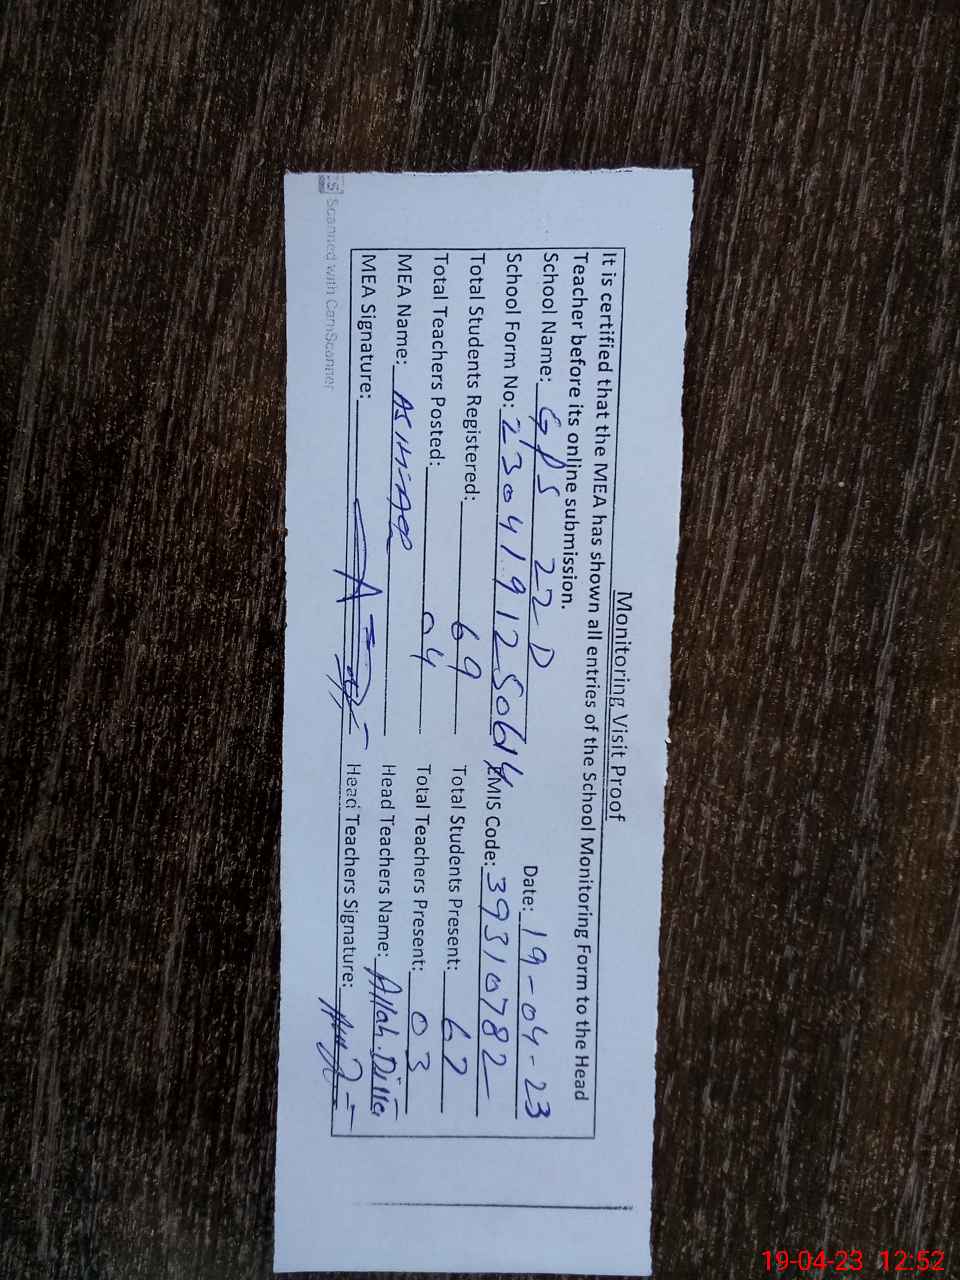 Monitoring Visit Proof
It is certified that the MEA has shown all entries of the School Monitoring Form to the Head
Teacher before its online submission.
School Name: GPS 22-D Date: 19-04-23
School Form No: 2304191250614 EMIS Code: 39310782
Total Students Registered: 69 Total Students Present: 67
Total Teachers Posted: 04 Total Teachers Present: 03
MEA Name: Head Teachers Name: Allah Ditta
MEA Signature: Head Teachers Signature:
CS Scanned with CamScanner
19-04-23 12:52